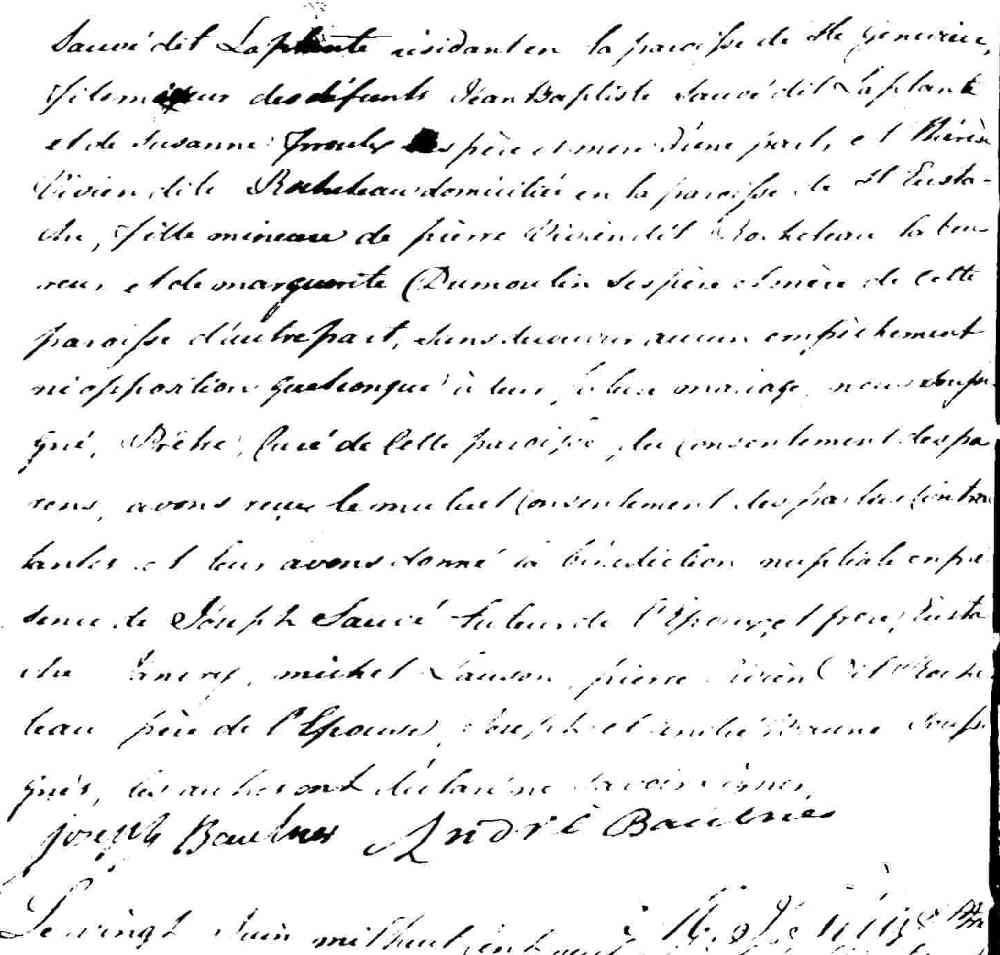 Sauvé dit Laplante résidant en la paroisse de Ste Geneviève,
fils mineur des défunts Jéan Baptiste Sauvé dit Laplante
et de Susanne ses père et mere d'une part, et Thérèse
Vivien dite Rocheleau domiciliée en la paroisse de St Eusta-
che, fille mineure de pierre Vivien dit Rocheleau labou-
reur, et de marguerite Dumoulin ses père et mère de Cette
paroisse d'autre part, sans decouvrir aucun empêchement
ni opposition quelconque à leur mariage, nous soussi-
gné, Prêtre, Curé de Cette paroisse, du Consentement des pa
rens, avons reçu le mutuel Consentement des parties Contrac
tantes et leur avons donné la bénédiction nuptiale en pré
sence de Jóseph Sauvé tuteur de l'Epoux, et frere, Eusta
che michel Lauson, pierre Vivien Dit Roche
leau père de l'Epouse, Joseph et andré Beaune souss
gnés, les autres ont déclaré ne savoir signer,
joseph Baulnes André Baulnes
Le vingt Juin mil huit Cent